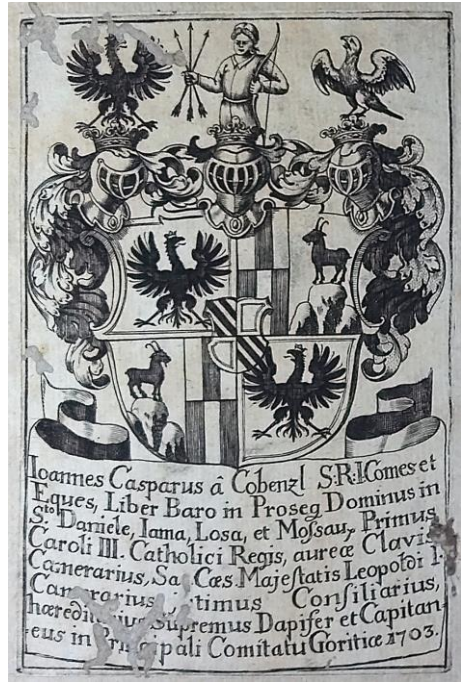 Ioannes Casparus â Cobenzl S:R:I:Comes et
Eques, Liber Baro in Proseg Dominus in
S.to Daniele, Iama, Losa, et Moſsau, Primus
Caroli III. Catholici Regis, aureæ Clavis
Camerarius, Sa. Cæs. Majeſtatis Leopoldi I.
Consiliarius,
Supremus Dapifer et Capitan=
eus in Principali Comitatu Goritiæ 1703.